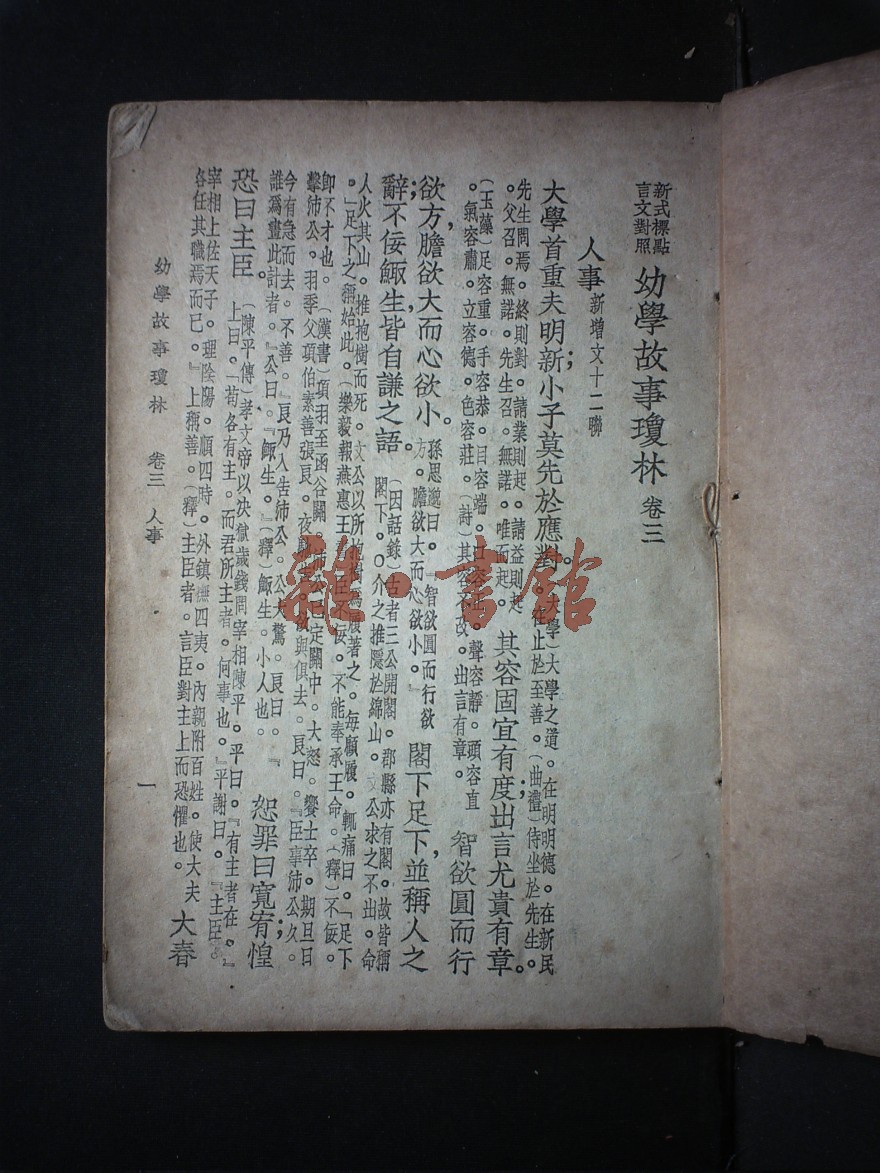 新式標點
言文對照
幼學故事瓊林 卷三
人事 新增文十二聯
大學首重夫明新;小子莫先於應對。
(大學)大學之道。在明明德。在新民
。在止於至善。(曲禮)侍坐於先生。
先生問焉。終則對。請業則起。請益則起
。父召。無諾。先生召。無諾。唯而起。
其容固宜有度;出言尤貴有章。
(玉藻)足容重。手容恭。目容端。口容止。聲容靜。頭容直
。氣容肅。立容德。色容莊。(詩)其容不改。出言有章。
智欲圓而行
欲方,膽欲大而心欲小。
孫思邈曰。『智欲圓而行欲
方。膽欲大而心欲小。』
閣下足下,並稱人之
辭;不佞鯫生,皆自謙之語。
(因話錄)古者三公開閣。郡縣亦有閣。故皆稱
閣下。○介之推隱於綿山。文公求之不出。命
人火其山。推抱樹而死。文公以所抱樹爲屐著之。每顧屐。輒痛曰。「足下
。」足下之稱始此。(樂毅報燕惠王書)臣不佞。不能奉承王命。(釋)不佞。
卽不才也。(漢書)項羽至函谷關。沛公已定關中。大怒。饗士卒。期旦日
擊沛公。羽季父項伯素善張良。夜馳。欲與俱去。良曰。『臣事沛公。
今有急而去。不善。』良乃入告沛公。公大驚。良曰。『
誰爲畫此計者。』公曰。『鯫生。』(釋)鯫生。小人也。
恕罪曰寬宥;惶
恐曰主臣。
(陳平傳)孝文帝以決獄歲錢問宰相陳平。平曰。『有主者在。』
上曰。「苟各有主。而君所主者。何事也。』平謝曰。『主臣。
宰相上佐天子。理陰陽。順四時。外鎮撫四夷。內親附百姓。使大夫
各任其職焉而已。』上稱善。(釋)主臣者。言臣對主上而恐懼也。
大春
幼學故事瓊林 卷三 人事 一
雜·書館